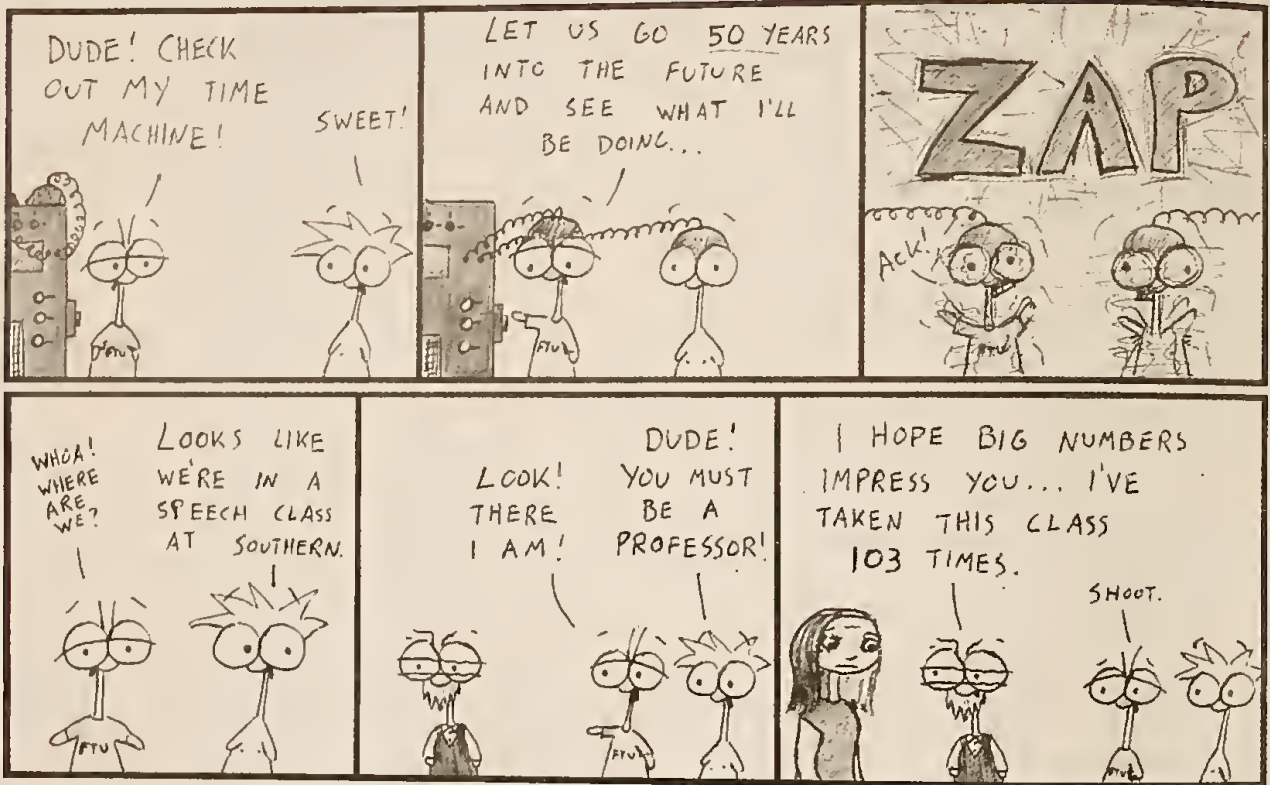 DUDE! CHECK
OUT MY TIME
MACHINE!
SWEET!
FTU
LET US GO 50 YEARS
INTO THE FUTURE
AND SEE WHAT I'LL
BE DOING...
FTU
ZAP
ACK!
FTU
WHOA!
WHERE
ARE
WE?
LOOKS LIKE
WE'RE IN A
SPEECH CLASS
AT SOUTHERN.
FTU
LOOK!
THERE
I AM!
DUDE!
YOU MUST
BE A
PROFESSOR!
FTU
I HOPE BIG NUMBERS
IMPRESS YOU... I'VE
TAKEN THIS CLASS
103 TIMES.
SHOOT.
FTU